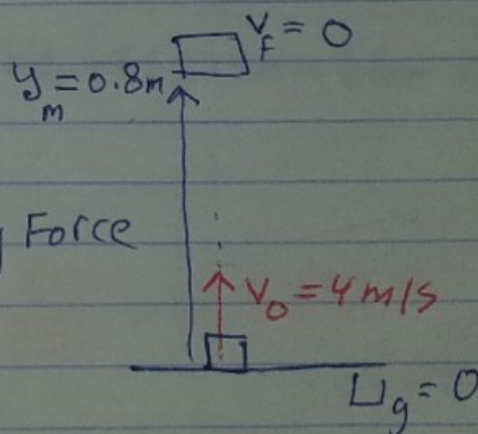 V_F = 0
y_m = 0.8m
Force
V_0 = 4 m/s
U_g = 0